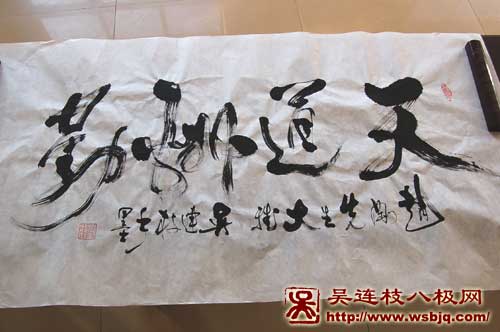 天道酬勤
趙 先生大雅 吴連枝 墨
吴连枝八极网
http://www.wsbjq.com